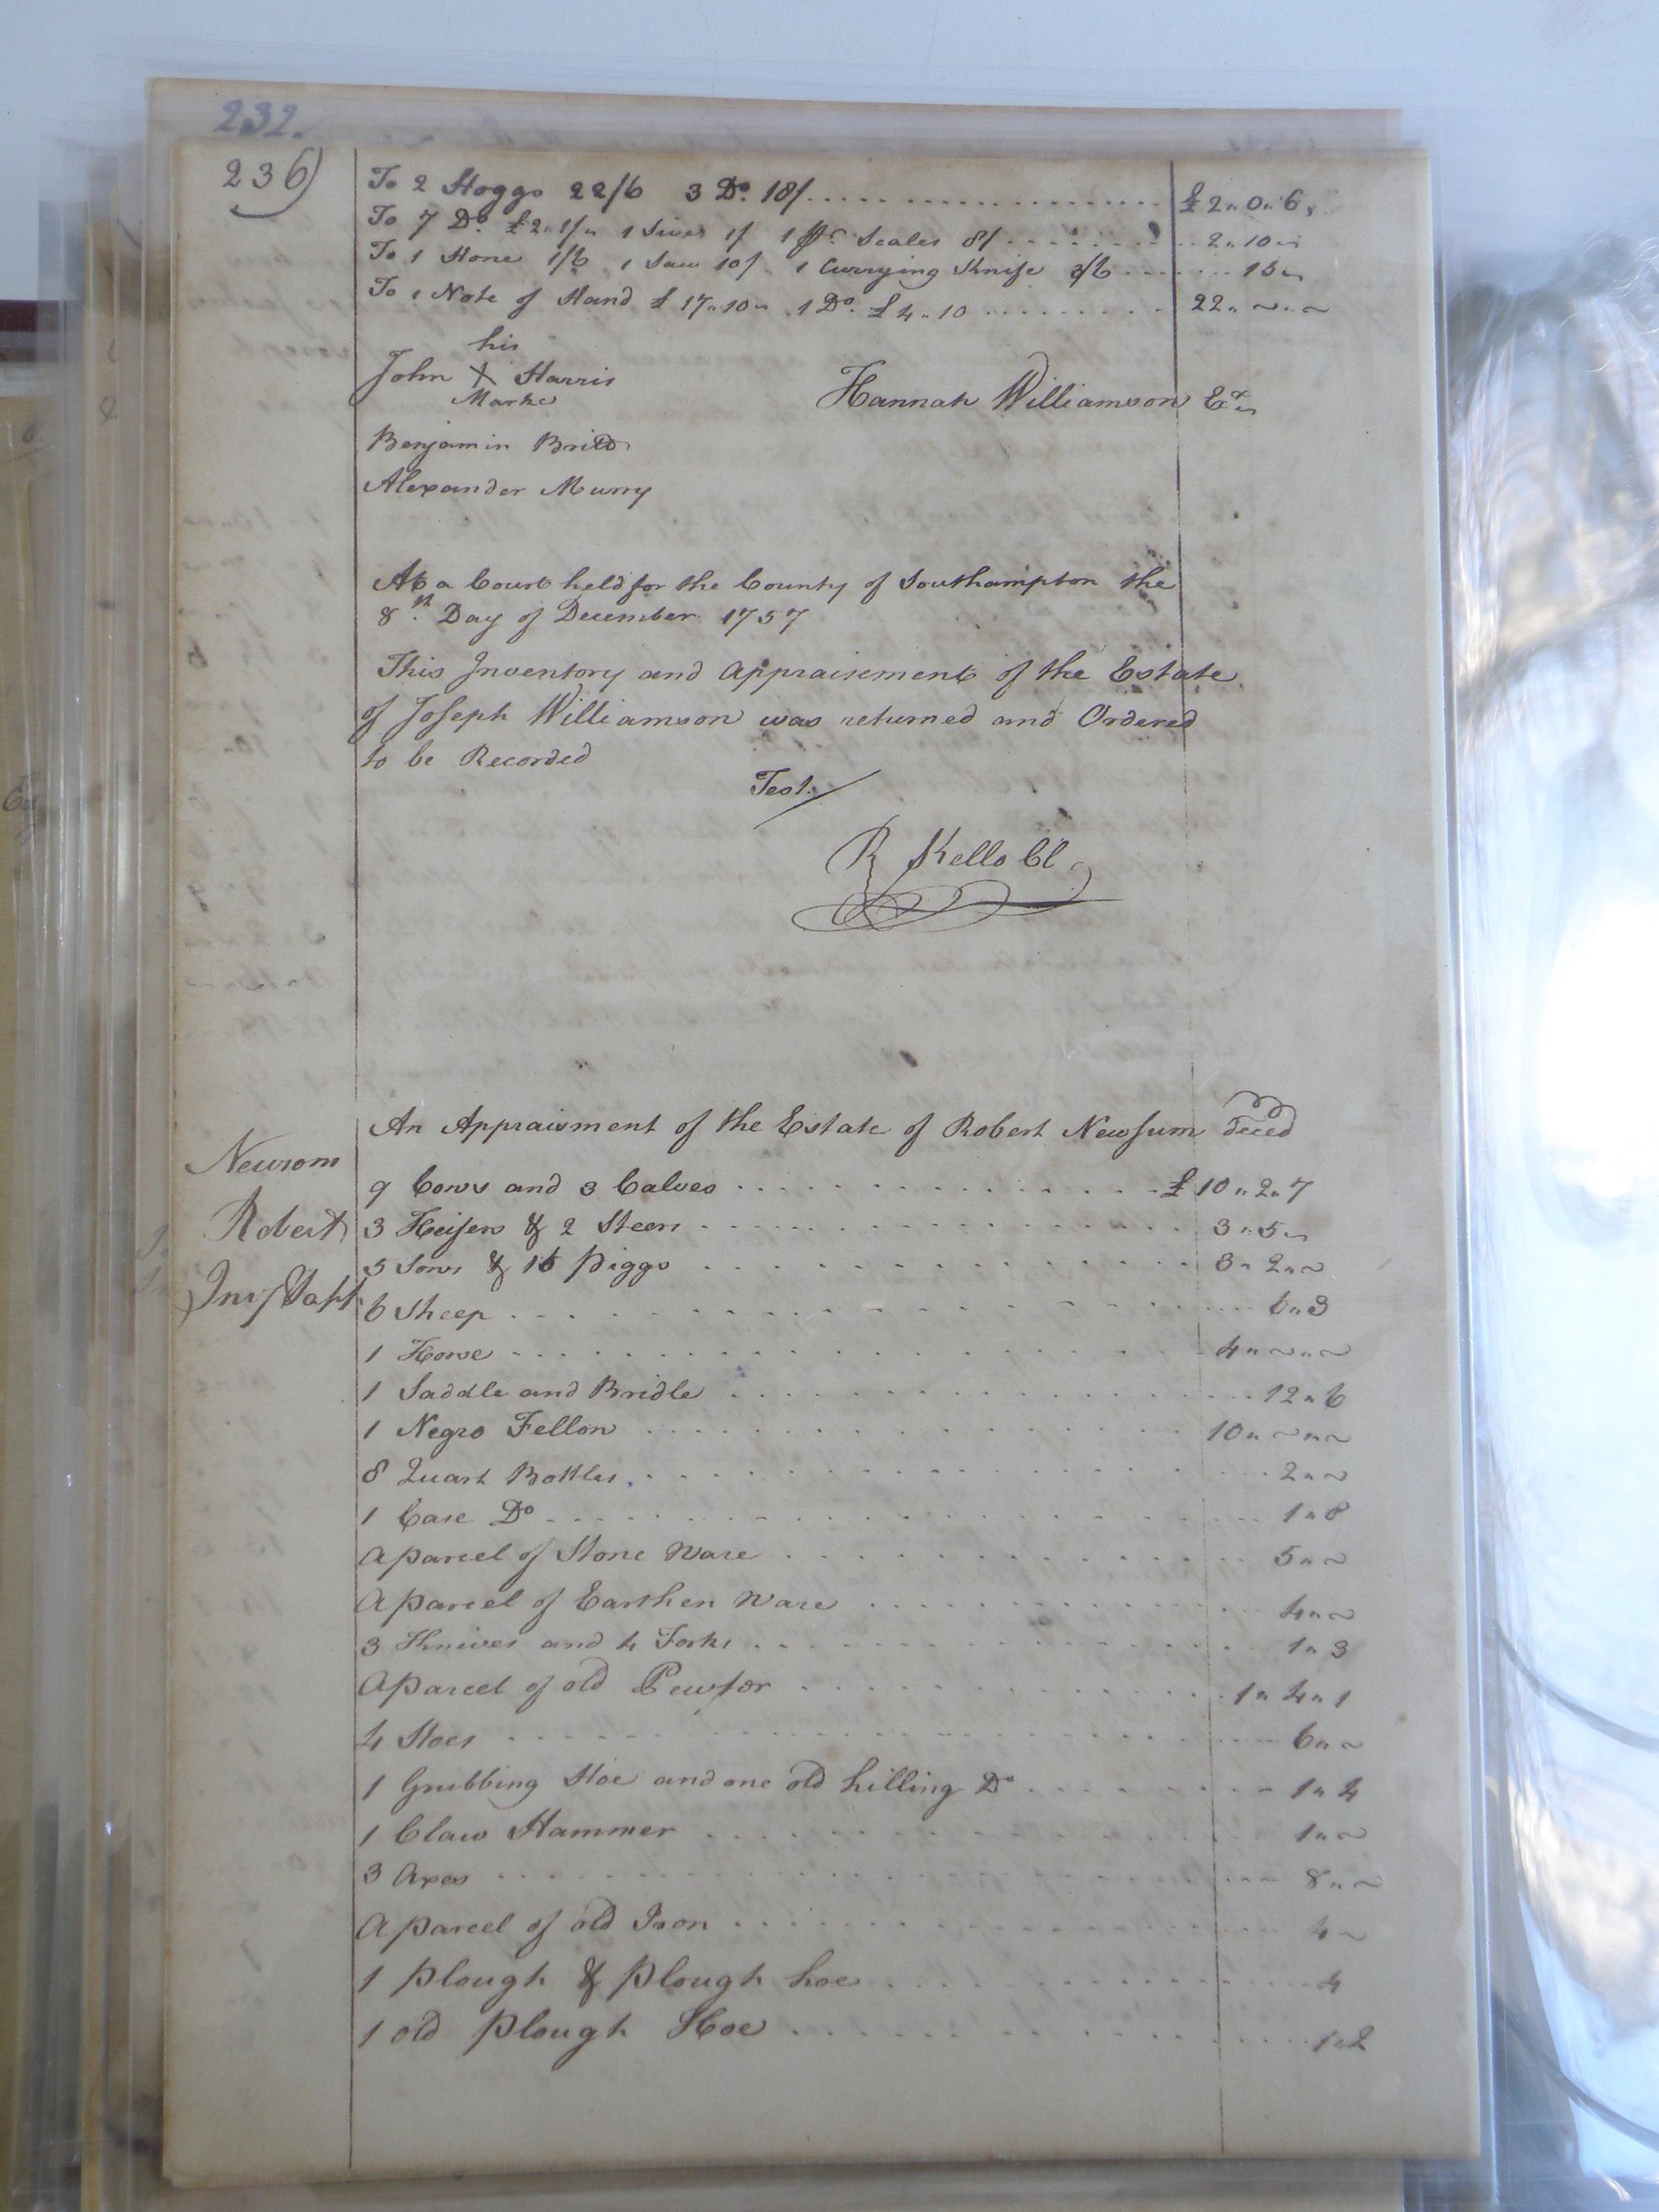 232.
236)
To 2 Hoggs 22/6 3 Do. 18/ £2"0"6
To 7 Do. £2"1/" 1 Sive 1/ 1 pr. Scales 8/ 2"10"
To 1 Hone 1/6 1 Saw 10/ 1 Currying Knife 3/6 15"
To 1 Note of Hand £17"10" 1 Do. £4"10 22"~"~
his
John X Harris
Marke
Hannah Williamson Ex
Benjamin Britt
Alexander Murry
At a Court held for the County of Southampton the
8th. Day of December 1757
This Inventory and Appraisement of the Estate
of Joseph Williamson was returned and Ordered
to be Recorded
Test.
R Kello Cl
An Appraisment of the Estate of Robert Newsum deced
Newsom
Robert
9 Cows and 3 Calves £10"2"7
3 Heifers & 2 Steers 3"5"
5 Sows & 16 piggs 3"2"~
6 Sheep 6"3
1 Horse 4"~"~
1 Saddle and Bridle 12"6
1 Negro Fellow 10"~"~
8 Quart Bottles 2"~
1 Case Do 1"8
A parcel of Stone Ware 5"~
A parcel of Earthen Ware 4"~
3 Knives and 4 Forks 1"3
A parcel of old Pewter 1"4"1
4 Hoes 6"~
1 Grubbing Hoe and one old hilling Do 1"4
1 Claw Hammer 1"~
3 Axes 8"~
A parcel of old Iron 4~
1 plough & plough hoe 4
1 old plough Hoe 1"2